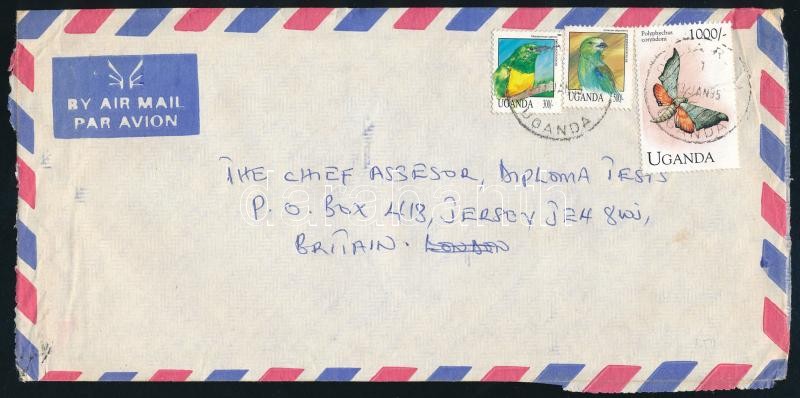 BY AIR MAIL
PAR AVION
UGANDA
300/-
UGANDA
UGANDA
Polyptychus
coryndoni
1000/-
UGANDA
JAN 95
UGANDA
THE CHIEF ASSESOR, DIPLOMA TESTS
P. O. BOX 413, JERSEY JE4 8WJ,
BRITAIN. LONDON
darabanth